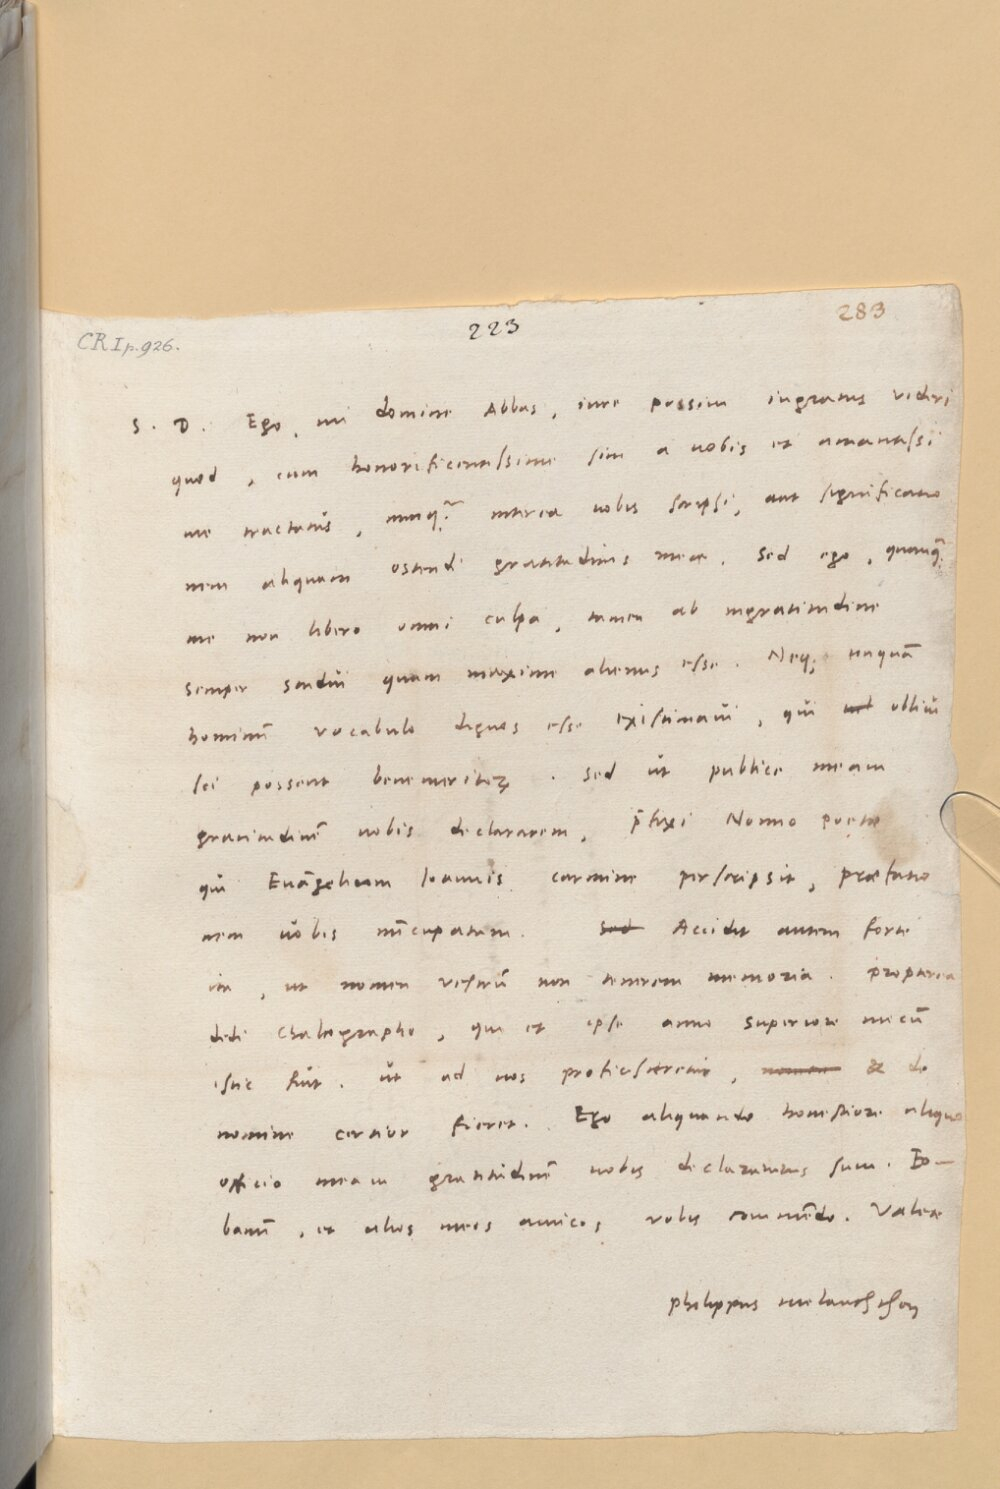 CR I p. 926.
223
283
S. D. Ego, mi domine Abbas, iure possim ingratus videri
quod, cum honorificentissime sim a uobis et amantissi
me tractatus, nunq̃ interea uobis scripsi, aut significatio
nem aliquam ostendi gratitudinis meae. Sed ego, quanq̃
me non libero omni culpa, tamen ab ingratitudine
semper studui quam maxime alienus esse. Neq; unquā
hominū vocabulo dignos esse existimaui, qui obliui
sci possent benemeritoꝝ. Sed ut publice meam
gratitudinē uobis declararem, p̄fixi Nonno poetae
qui Euāgelium Ioannis carmine perscripsit, praefatio
nem uobis nūcupatam. Sed Accidit autem forte
ita, ut nomen vestrū non tenerem memoria. propterea
dedi chalcographo, qui et ipse anno superiore mecū
istic fuit. ut ad uos proficisceretur, nomen & de
nomine certior fieret. Ego aliquando honestiore aliquo
officio meam gratitudinē uobis declaraturus sum. Eo-
banū, et alios meos amicos vobis commēdo. Valete
philippus melanchthon